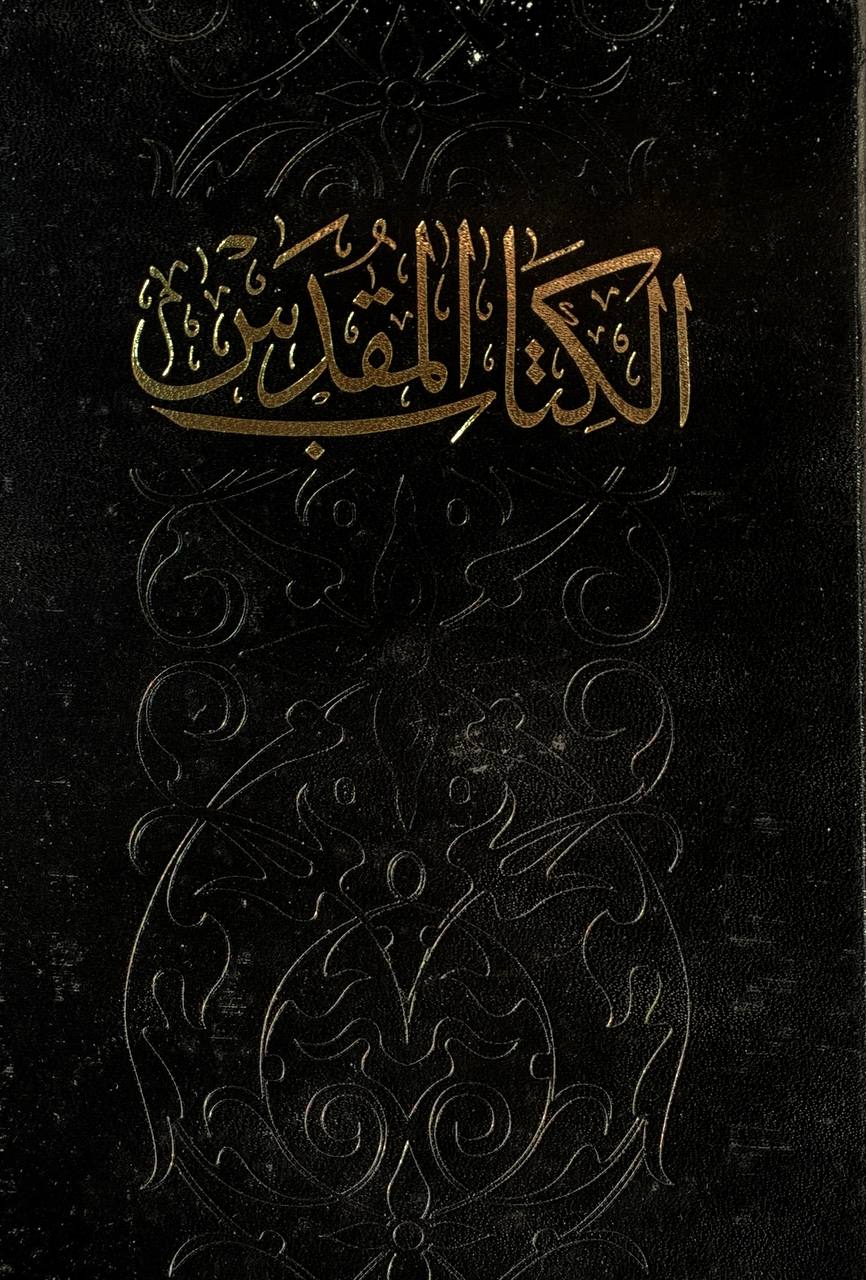 الكِتَابُ المُقَدَّس